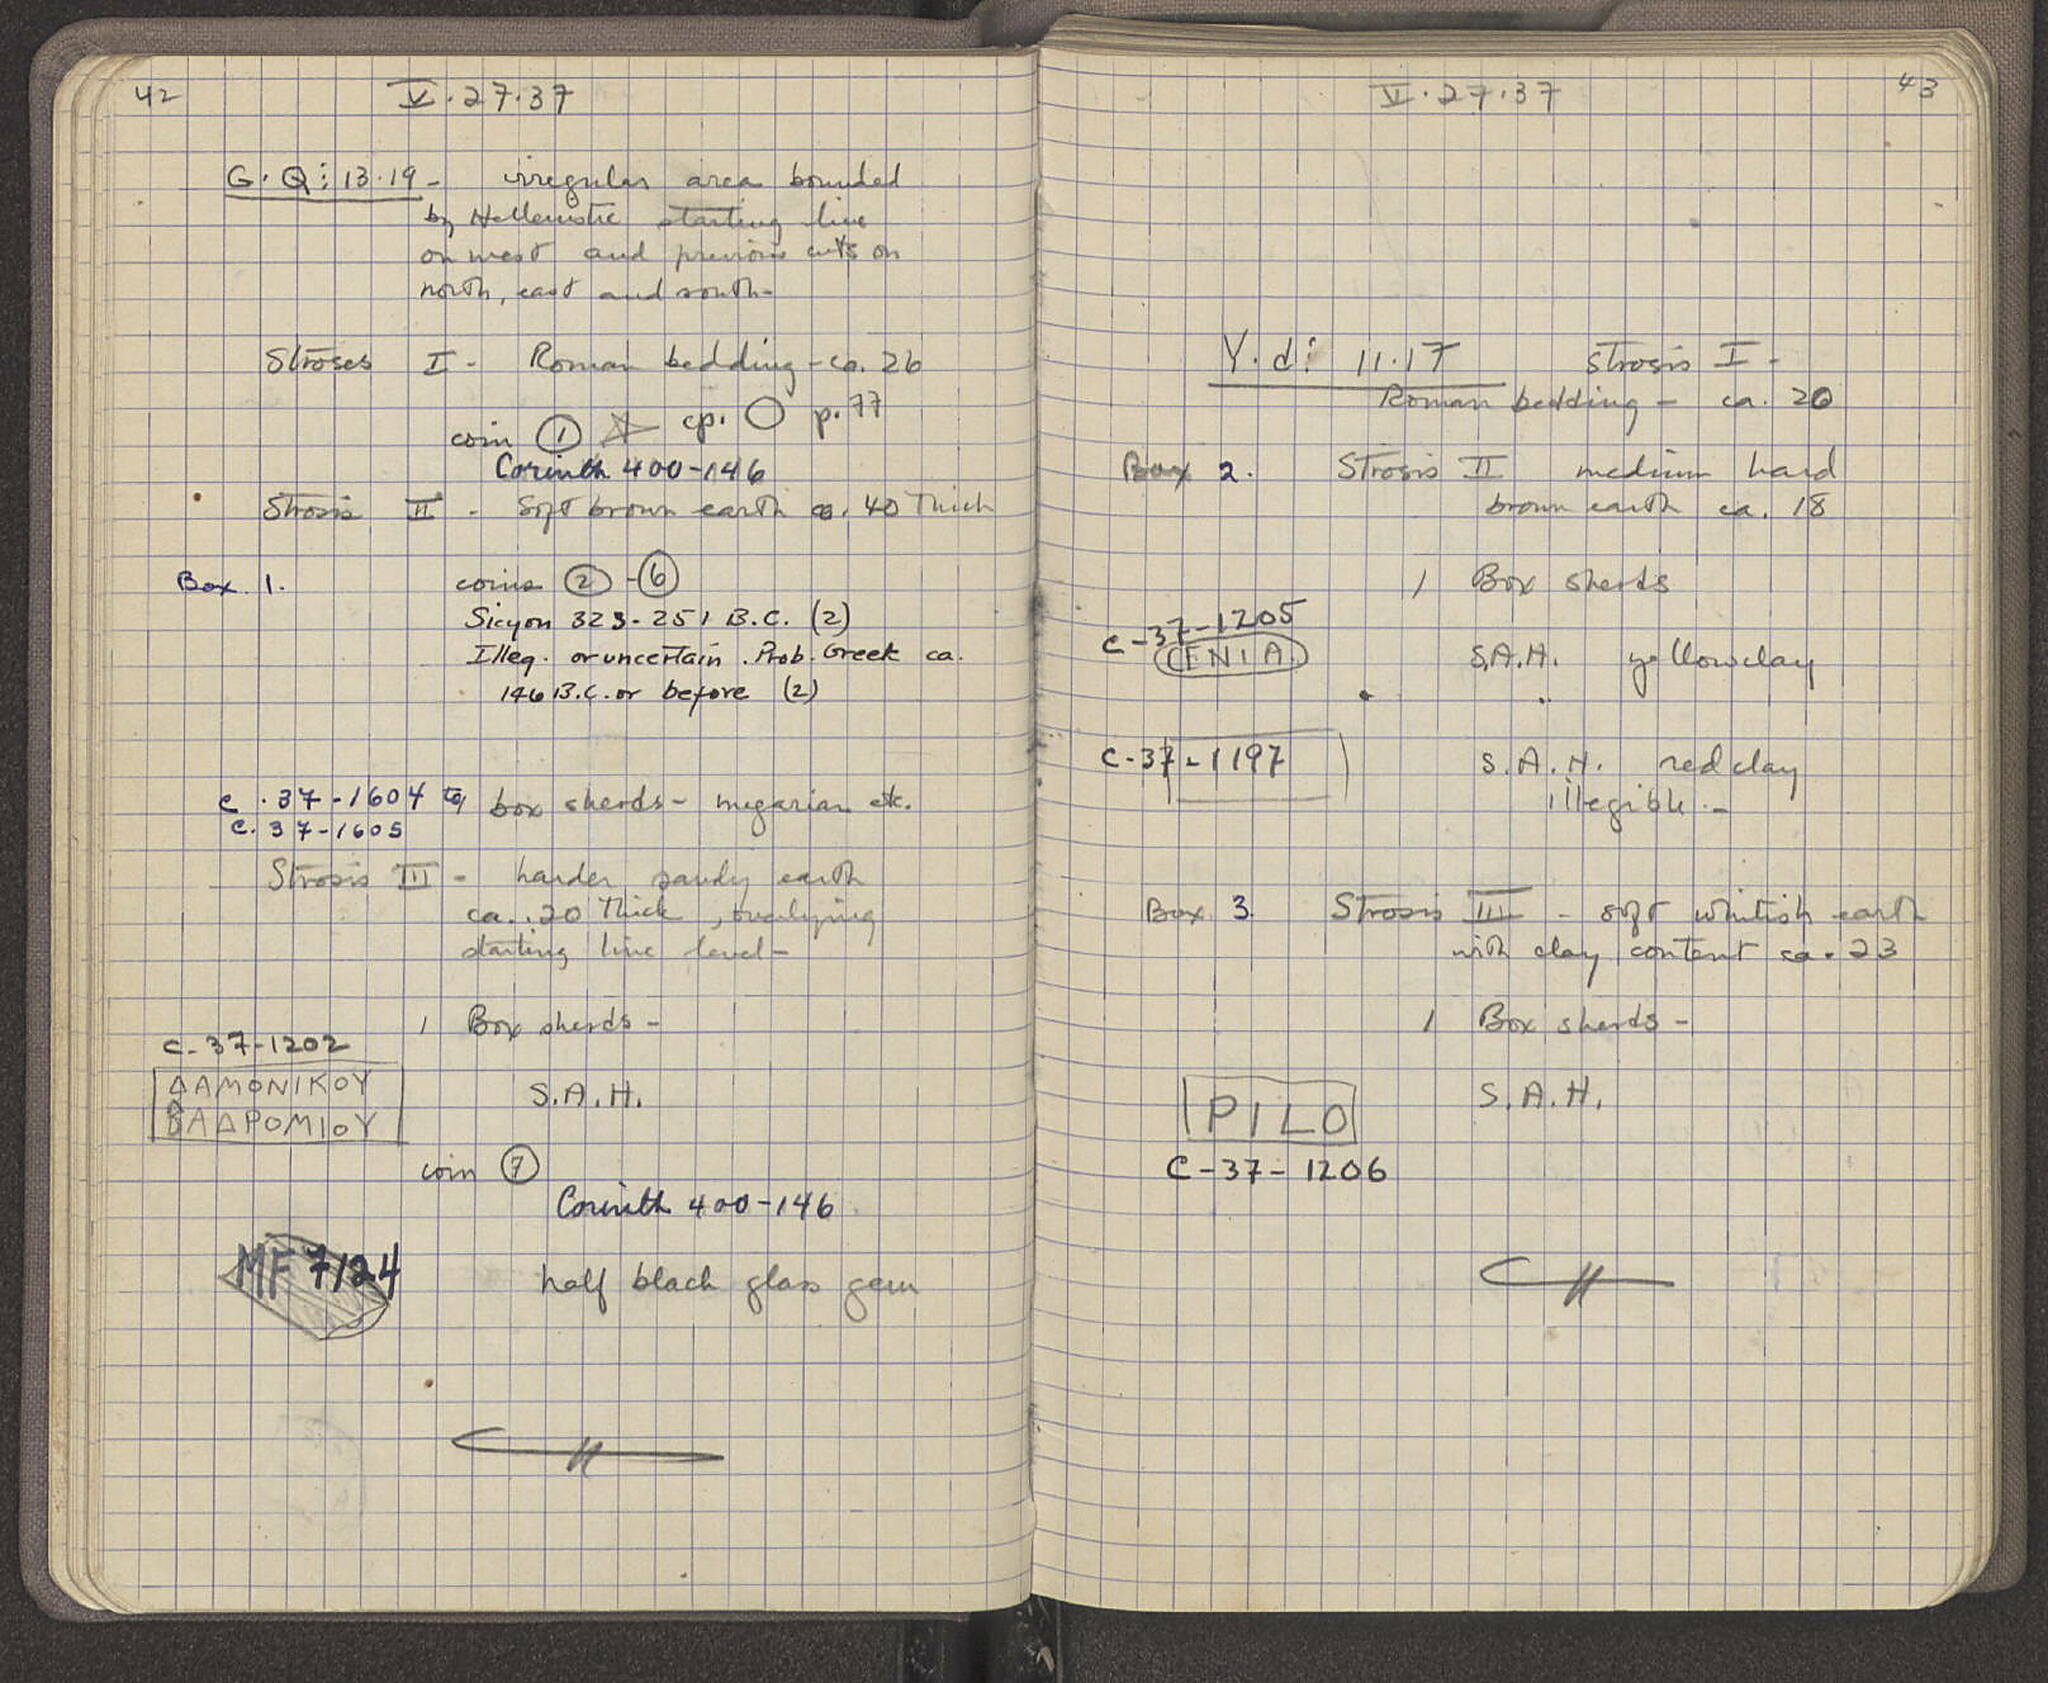 42
V.27.37
G.Q: 13.19 - irregular area bounded
by Hellenistic starting line
on west and previous cuts on
north, east and south-
Stroses I - Roman bedding - ca. 26
coin ① cp. ◯ p. 77
Corinth 400-146
Strosis II - soft brown earth ca. 40 thick
Box 1. coins ② - ⑥
Sicyon 323-251 B.C. (2)
Illeg. or uncertain. Prob. Greek ca.
146 B.C. or before (2)
C.37-1604 to box sherds - megarian etc.
C.37-1605
Strosis III - harder sandy earth
ca. .20 thick, overlying
starting line level-
1 Box sherds -
C-37-1202
ΔΑΜΟΝΙΚΟΥ S.A.H.
ΒΑΔΡΟΜΙΟΥ
coin ⑦
Corinth 400-146
MF 7124 half black glass gem
43
V.27.37
Y.d: 11.17 Strosis I -
Roman bedding - ca. 20
Box 2. Strosis II medium hard
brown earth ca. 18
1 Box sherds
C-37-1205
ENIA S.A.H. yellow clay
C-37-1197 S.A.H. red clay
illegible -
Box 3. Strosis III - soft whitish earth
with clay content ca. 23
1 Box sherds -
PILO S.A.H.
C-37-1206